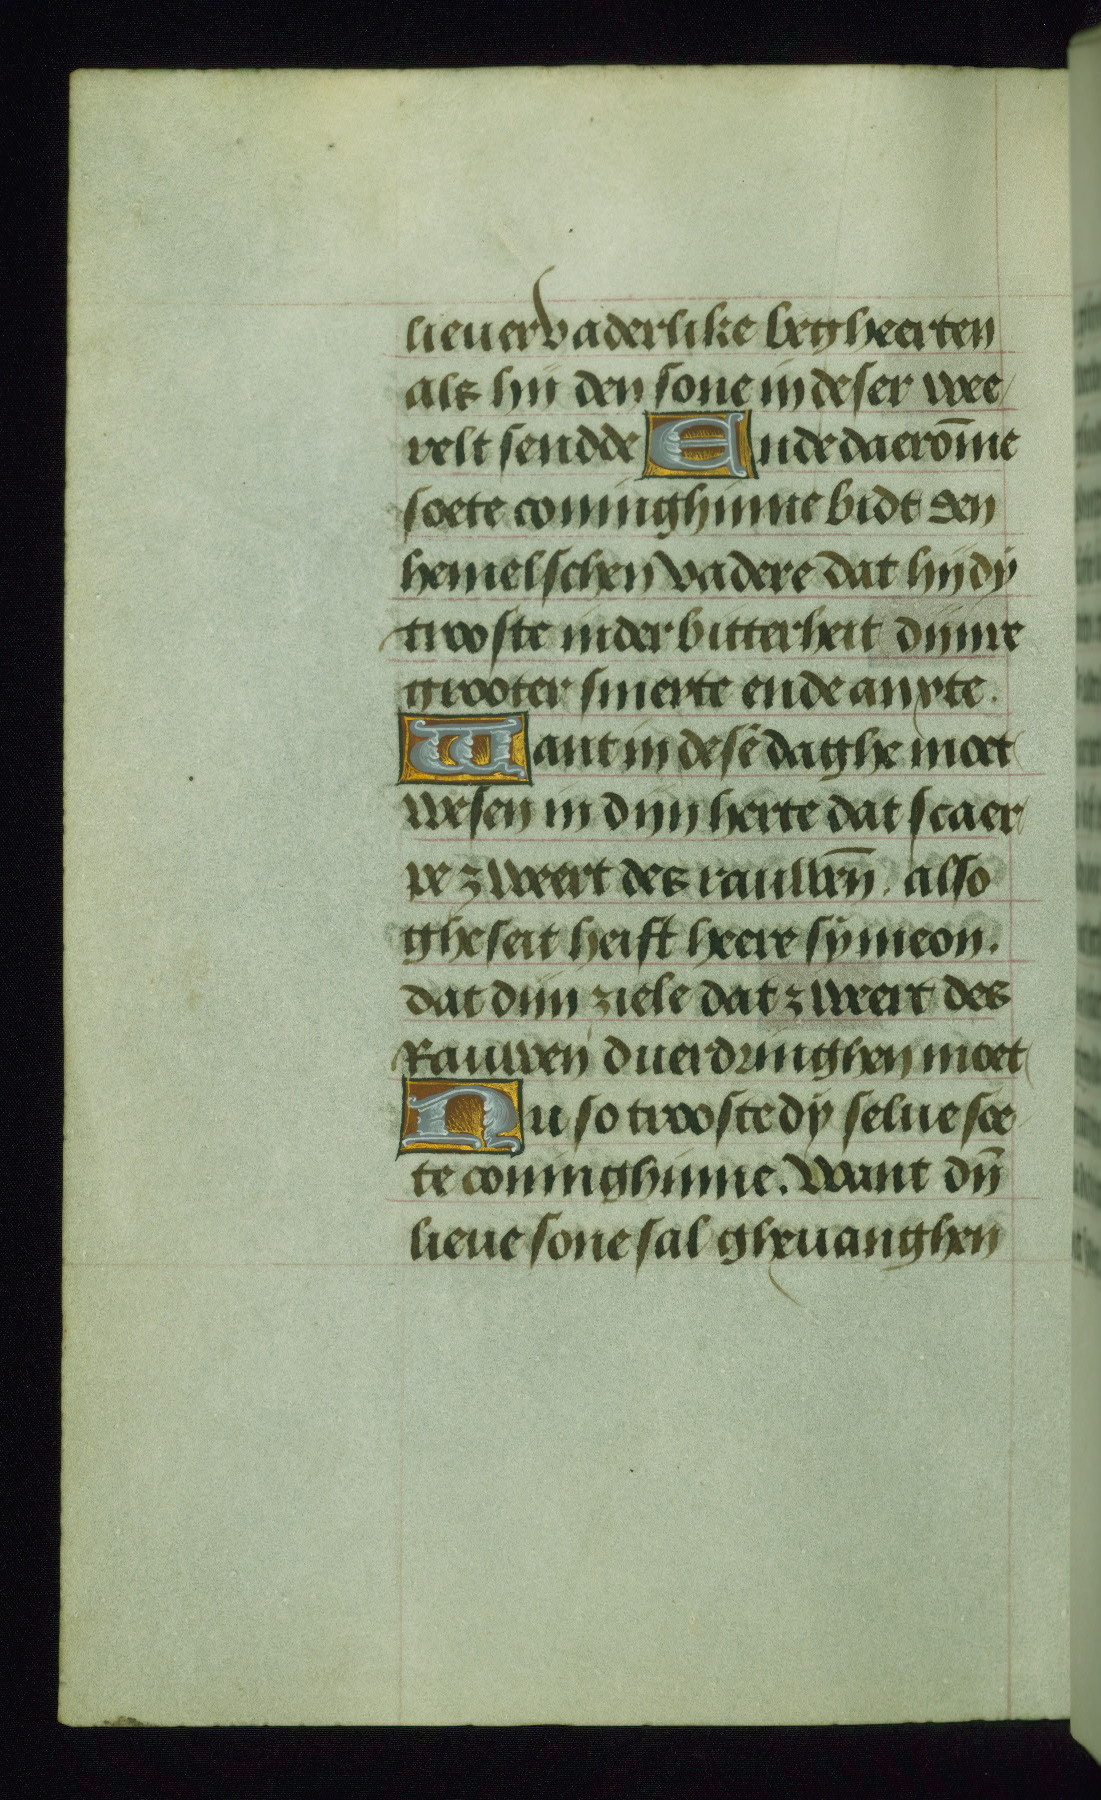 lieuer vaderlike begheerten
als hij den sone in deser wee
relt sendde Ende daerom̄e
soete coninghinne bidt den
hemelschen vadere dat hij dy
trooste in der bitterheit dijnre
grooter smerte ende anxte.
Want in desē daghe moet
wesen in dijn herte dat scaer
pe zweert des rauwēn. also
gheseit heift heere sÿmeon.
dat dijn ziele dat zweert des
Rauwen duerdringhen moet
Nu so trooste dy selue soe
te coninghinne. Want dīn
lieue sone sal gheuanghen